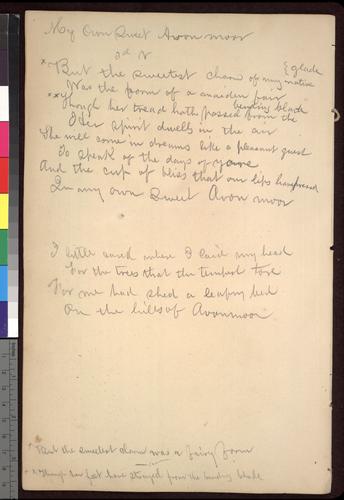 My Own Sweet Avon moor
3d V
*But the sweetest charm of my native {glade
Was the form of a maiden fair
**Though her tread hath passed from the bending blade
Her spirit dwells in the air
She will come in dreams like a pleasant guest
To speak of the days of yore
And the cup of bliss that our lips have pressed
In my own Sweet Avon moor
I little cared where I laid my head
For the trees that the tempest tore
For me had shed a leafy bed
On the hills of Avonmoor
*But the sweetest charm was a fairy form
**Though her feet have strayed from the bending blade